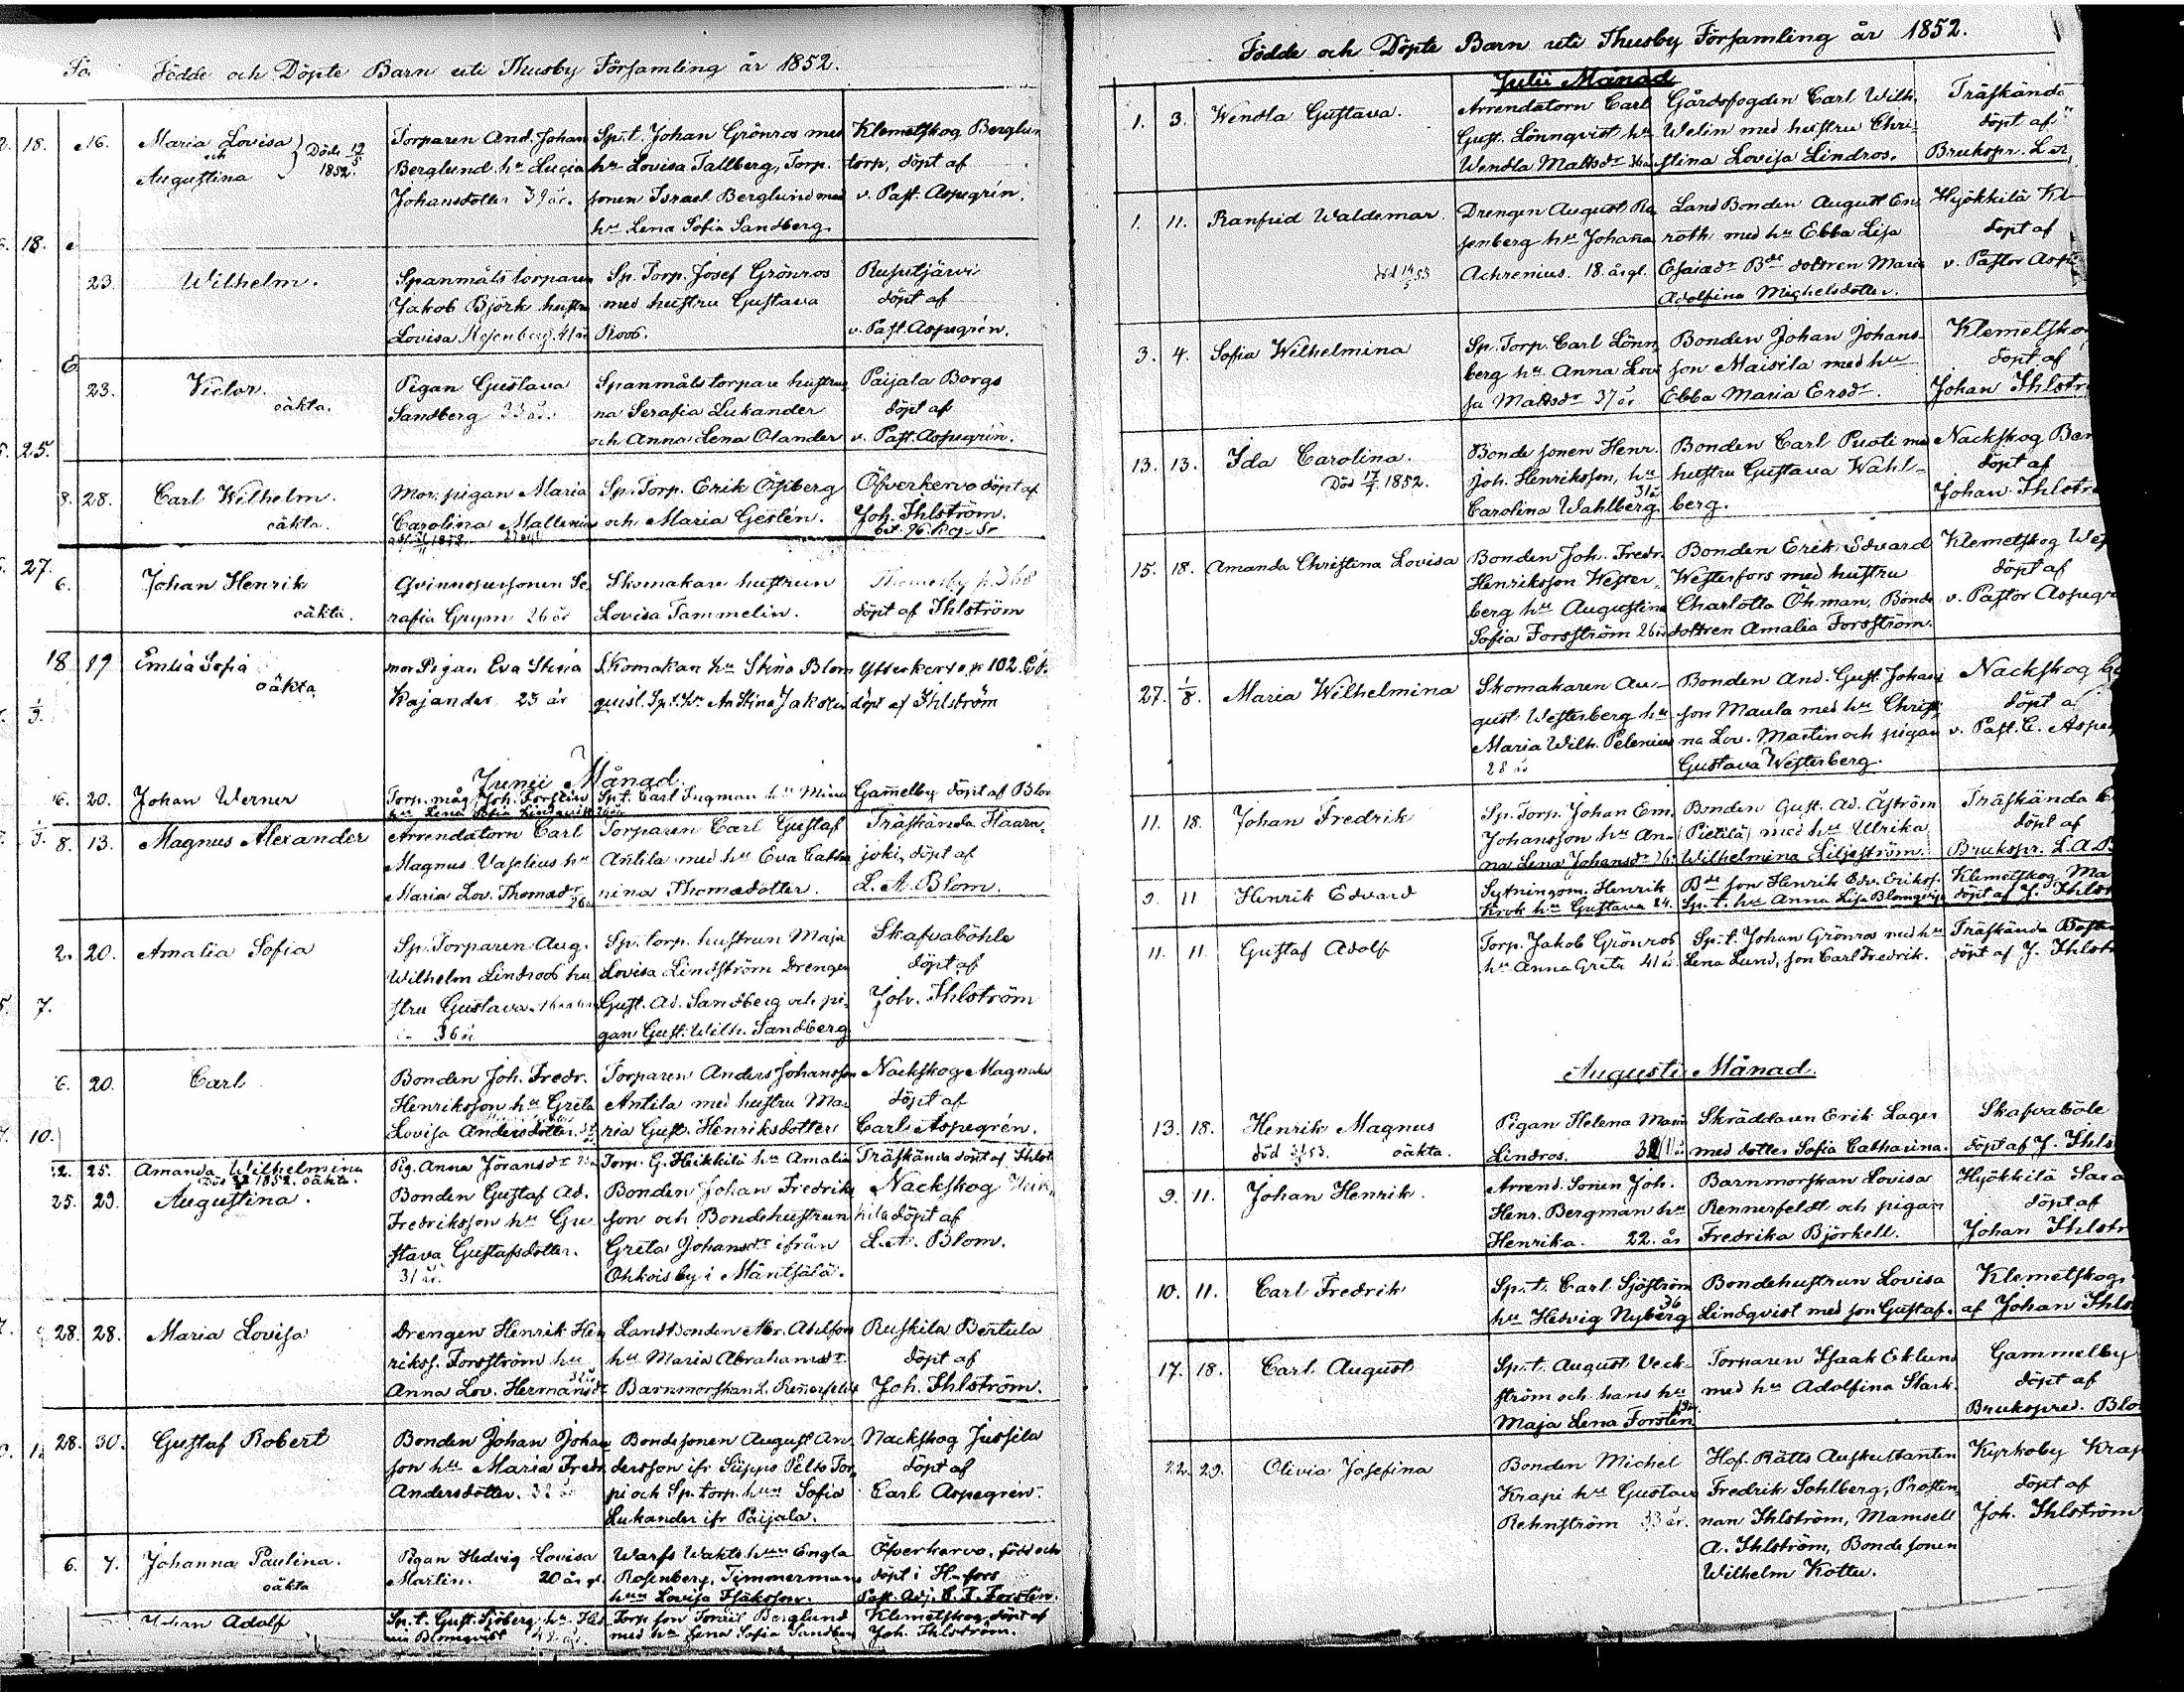 Födde och Döpte Barn uti Thusby Församling år 1852.
16. Maria Lovisa och Augustina Död 12/5 1852.
Torparen And. Johan
Berglund hu Lucia
Johansdotter 39 år.
Sp. t. Johan Grönroos med
hu Lovisa Tallberg, Torp.
sonen Israel Berglund med
hu Lena Sofia Sandberg.
Klemetskog Berglun
torp, döpt af
v. Past. Aspegrén.
23. Wilhelm.
Spanmåls torparen
Jakob Björk hustru
Lovisa Rosenberg 41 år
Sp. Torp. Josef Grönros
med hustru Gustava
Roos.
Rusutjärvi
döpt af
v. Past. Aspegrén.
23. Victor. oäkta.
Pigan Gustava
Sandberg 33 år.
Spanmåls torpare hustrur
na Serafia Lukander
och Anna Lena Olander
Paijala Borgs
döpt af
v. Past. Aspegrén.
8. 28. Carl Wilhelm. oäkta.
Mor. pigan Maria
Carolina Mallenius
Sp. Torp. Erik Ösjberg
och Maria Geslén.
Öfverkervo döpt af
Joh. Ihlström.
6. Johan Henrik oäkta.
Qvinnospersonen Se
rafia Grym 26 år
Skomakare hustrun
Lovisa Tammelin.
Thomasby p. 368
döpt af Ihlström
18 19 Emilia Sofia oäkta
mor Pigan Eva Stina
Kajander 23 år
Skomakar hu Stina Blom
quist. Sp. t. hu An Stina Jakobs
Ytterkervo p 102.
döpt af Ihlström
Junii Månad.
16. 20. Johan Werner
Torp. måg Joh. Forstén
hu Lena Sofia Lindqvist 26 år
Sp. t. Carl Ingman hu Mina
Gamelby döpt af Blom
8. 13. Magnus Alexander
Arrendatorn Carl
Magnus Vaselius hu
Maria Lov. Thomasdr 26
Torparen Carl Gustaf
Antila med hu Eva Catha
rina Thomasdotter.
Träskända Haara-
joki, döpt af
L. A. Blom.
2. 20. Amalia Sofia
Sp. Torparen Aug.
Wilhelm Lindroos hu
stru Gustava
36 år
Sp. torp. hustrun Maja
Lovisa Lindström Drengen
Gust. Ad. Sandberg och pi-
gan Gust. Wilh. Sandberg
Skafvaböhle
döpt af
Joh. Ihlström
6. 20. Carl
Bonden Joh. Fredr.
Henriksson hu Greta
Lovisa Andersdotter.
Torparen Anders Johansson
Antila med hustru Ma-
ria Gust. Henriksdotter
Nackskog Magnula
döpt af
Carl Aspegrén.
22. 25. Amanda Wilhelmina 1852. oäkta.
Pig. Anna Jöransdr
Torp. G. Heikkilä hu Amalia
Träskända döpt af Ihlst
25. 29. Augustina.
Bonden Gustaf Ad.
Fredriksson hu Gu
stava Gustafsdotter.
31 år.
Bonden Johan Fredriks
son och Bondehustrun
Greta Johansdr ifrån
Ohkoisby i Mäntsälä.
Nackskog Heik
kila döpt af
L. A. Blom.
28. 28. Maria Lovisa
Drengen Henrik Hen
rikss. Forsström hu
Anna Lov. Hermansdr
Landtbonden Abr. Adolfson
hu Maria Abrahamsdr.
Barnmorskan L. Rennerfeldt
Ruskila Bertula
döpt af
Joh. Ihlström.
28. 30. Gustaf Robert
Bonden Johan Johan
son hu Maria Fredr.
Andersdotter. 32 år
Bondesonen August An-
dersson ifr Siippo Pelto Tor
pi och Sp. torp. hun Sofia
Lukander ifr Paijala.
Nackskog Jussila
döpt af
Carl Aspegrén.
6. 7. Johanna Paulina. oäkta
Pigan Hedvig Lovisa
Martin. 20 år gl.
Warfs Wakts hun Engla
Rosenberg, Timmermans
hun Lovisa Isaksson.
Öfverkervo, född och
döpt i H-fors
Past. Adj. C. T. Forstén.
Johan Adolf
Sp. t. Gust. Sjöberg hu Hed
vig Blomqvist 42 år.
Torp. son Israel Berglund
med hu Lena Sofia Sandberg
Klemetskog, döpt af
Joh. Ihlström.
Födde och Döpte Barn uti Thusby Församling år 1852.
Julii Månad
1. 3. Wendla Gustava.
Arrendatorn Carl
Gust. Lönnqvist hu
Wendla Mattsdr 36 år
Gårdsfogden Carl Wilh.
Welin med hustru Chri-
stina Lovisa Lindros.
Träskända
döpt af
Brukspr. L. A.
1. 11. Ranfrid Waldemar. död 14/5 53
Drengen August Ro
senberg hu Johana
Achrenius. 18. år gl.
Land Bonden August En
roth med hu Ebba Lisa
Esaiadr Bde dottren Maria
Adolfina Michelsdotter.
Hyökkilä Kl
döpt af
v. Pastor Aspe
3. 4. Sofia Wilhelmina
Sp. Torp. Carl Lönn
berg hu Anna Lovi
sa Mattsdr 37 år
Bonden Johan Johans-
son Maisila med hu
Ebba Maria Ersdr.
Klemetsko
döpt af
Johan Ihlstr
13. 13. Ida Carolina. Död 17/7 1852.
Bonde sonen Henr.
Joh. Henriksson, hu
Carolina Wahlberg. 31 år
Bonden Carl Puoti med
hustru Gustava Wahl-
berg.
Nackskog Ben
döpt af
Johan Ihlstr
15. 18. Amanda Christina Lovisa
Bonden Joh. Fredr.
Henriksson Wester-
berg hu Augustina
Sofia Forsström 26 år
Bonden Erik Edvard
Westerfors med hustru
Charlotta Öhman, Bonde
dottren Amalia Forsström.
Klemetskog Wes
döpt af
v. Pastor Aspegr
27. 1/8. Maria Wilhelmina
Skomakaren Au-
gust Westerberg hu
Maria Wilh. Pelenius
28 år
Bonden And. Gust. Johans
son Maula med hu Christi
na Lov. Martin och pigan
Gustava Westerberg.
Nackskog
döpt a
v. Past. C. Aspe
11. 18. Johan Fredrik
Sp. Torp. Johan Em.
Johansson hu An-
na Lena Johansdr 26
Bonden Gust. Ad. Åström
(Pietilä) med hu Ulrika
Wilhelmina Liljeström.
Träskända
döpt af
Brukspr. L. A. B
9. 11 Henrik Edvard
Sytningom. Henrik
Krok hu Gustava 24.
Bde son Henrik Edv. Eriksf.
Sp. t. hu Anna Lisa Blomqvist
Klemetskog Ma
döpt af J. Ihlst
11. 11. Gustaf Adolf
Torp. Jakob Grönros
hu Anna Greta 41 år
Sp. t. Johan Grönros med hu
Lena Lund, son Carl Fredrik.
Träskända
döpt af J. Ihlst
Augusti Månad.
13. 18. Henrik Magnus död 53. oäkta.
Pigan Helena Maria
Lindros.
Skräddaren Erik Lager
med dotter Sofia Catharina.
Skafvaböle
döpt af J. Ihls
9. 11. Johan Henrik.
Arrend. Sonen Joh.
Henr. Bergman hu
Henrika. 22. år
Barnmorskan Lovisa
Rennerfeldt och pigan
Fredrika Björkell.
Hyökkilä Sara
döpt af
Johan Ihlstr
10. 11. Carl Fredrik
Sp. t. Carl Sjöström
hu Hedvig Nyberg 36
Bondehustrun Lovisa
Lindqvist med son Gustaf.
Klemetskog.
af Johan Ihls
17. 18. Carl August
Sp. t. August Veck-
ström och hans hu
Maja Lena Forstén
Torparen Isaak Eklund
med hu Adolfina Stark.
Gammelby
döpt af
Brukspred. Blo
22. 29. Olivia Josefina
Bonden Michel
Krapi hu Gustava
Rehnström 33 år.
Hof. Rätts Auskultanten
Fredrik Sohlberg, Prostin
nan Ihlström, Mamsell
A. Ihlström, Bonde sonen
Wilhelm Kottu.
Kyrkoby Krap
döpt af
Joh. Ihlström